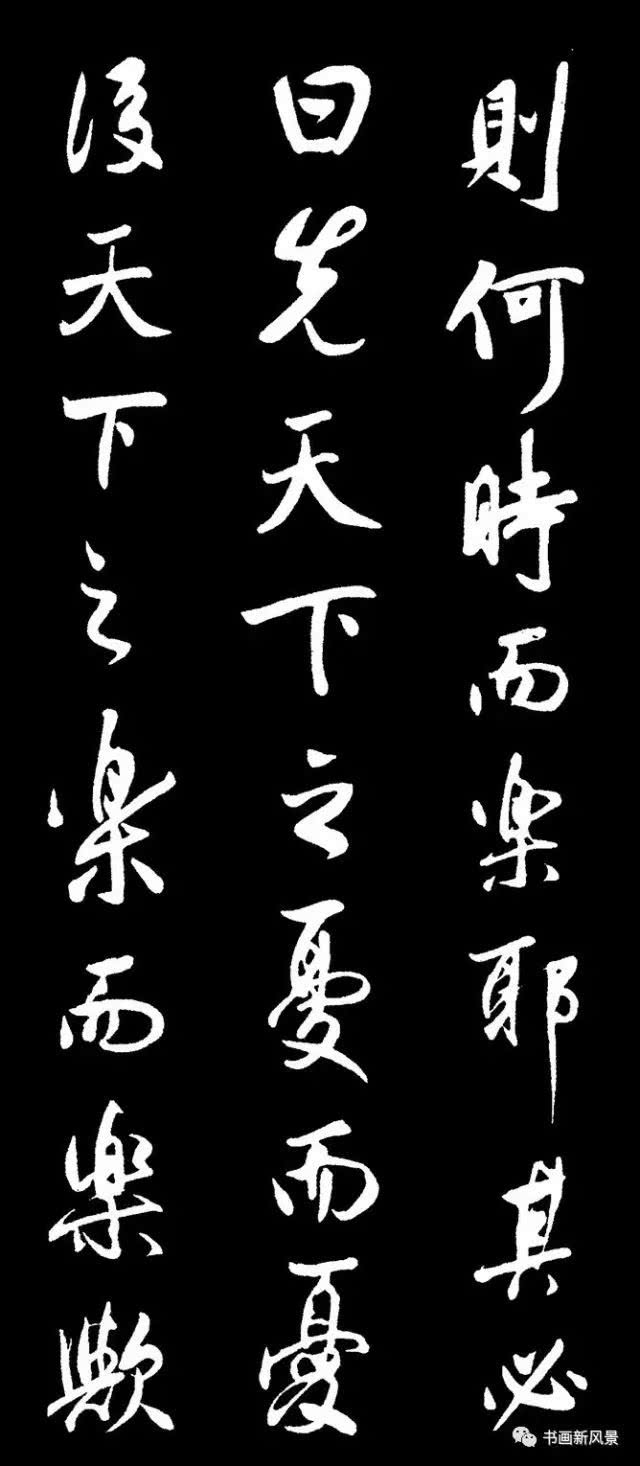 則何時而楽耶其必
曰先天下之憂而憂
後天下之楽而楽歟
书画新风景